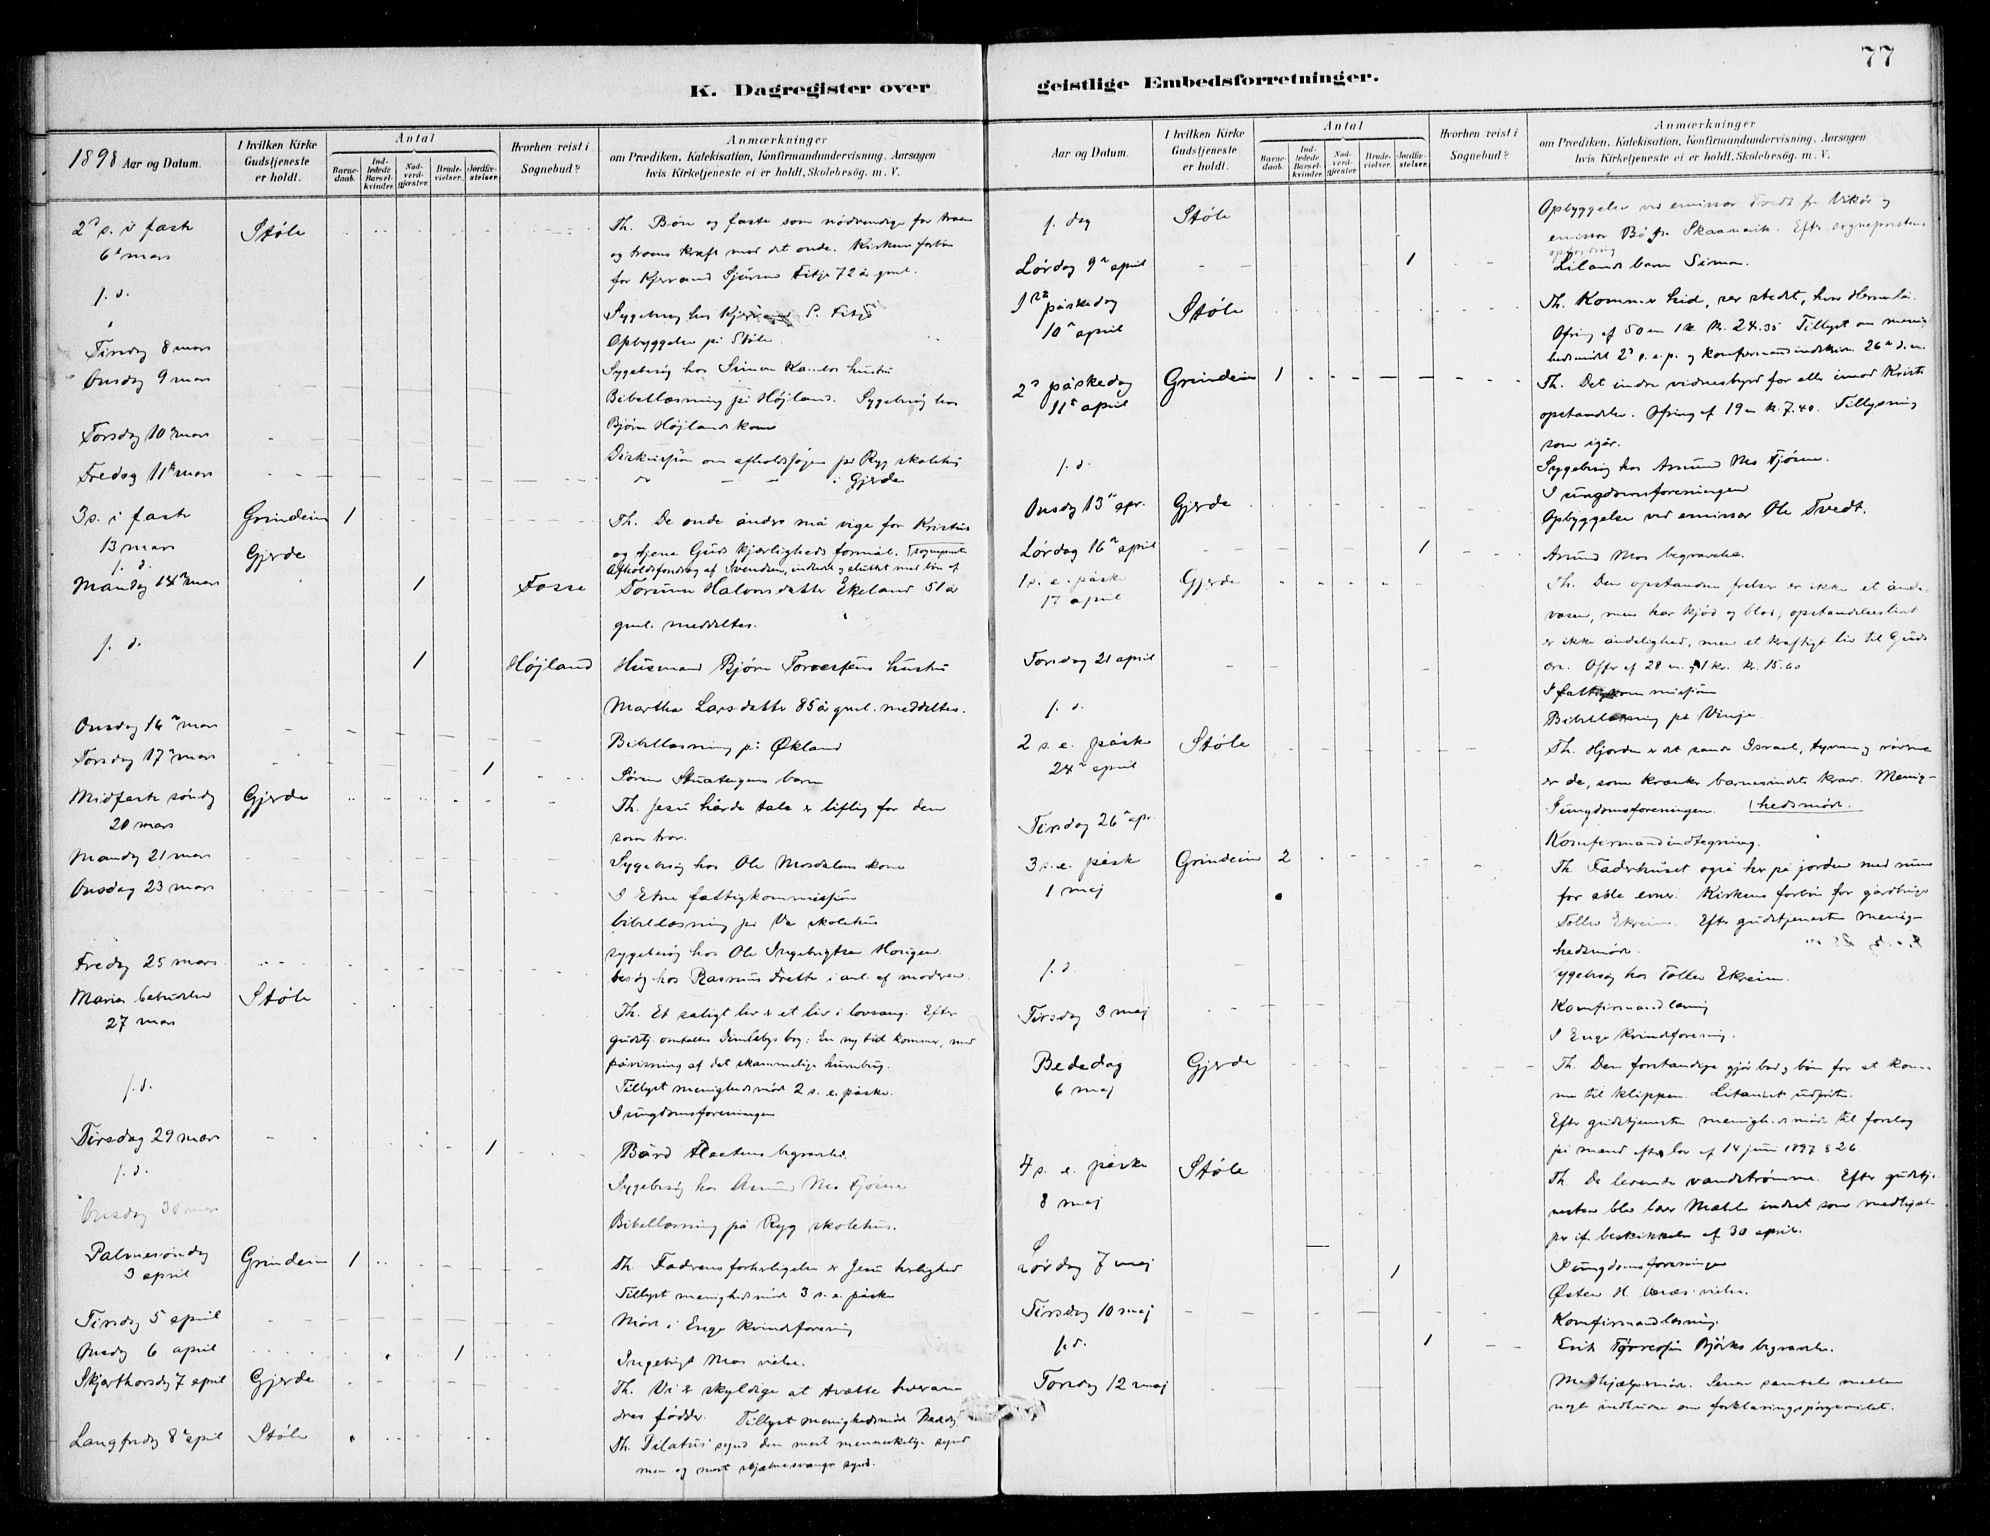 77
K. Dagregister over
geistlige Embedsforretninger.
1898 Aar og Datum.
I hvilken Kirke Gudstjeneste er holdt.
Antal
Barnedaab.
Indledede Barselkvinder.
Nadverdgjæster.
Brudevielser.
Jordfæstelser.
Hvorhen reist i Sognebud?
Anmærkninger
om Prædiken, Katekisation, Konfirmandundervisning, Aarsagen
hvis Kirketjeneste ei er holdt, Skolebesøg, m. V.
2 s. i faste Støle Th. Bøn og faste som nødvendige for troen
6 mars og troens kraft mod det onde. Kirkens forbøn
for Sjursen Fitje 72 år gml.
s. d. Sygebesøg hos S. Fitje
Opbyggelse på Støle.
Tirsdag 8 mars Sygebesøg hos Simon hustru
Onsdag 9 mars Bibellæsning på Højland. Sygebesøg hos
Bjørn Højlands kone
Torsdag 10 mars Diskussion om afholdssagen på Ryg skolehus
Fredag 11 mars do — — i Gjerde
3 s. i faste Grindeim 1 Th. De onde ånder må vige for Kristus
13 mars og tjene Guds kjærligheds formål.
s. d. Gjerde Afholdsforedrag af Svendsen, indledet og sluttet med bøn af sognepræst
Mandag 14 mars 1 Fosse Torunn Halvorsdatter Ekeland 51 år
gml. meddeltes.
s. d. 1 Højland Husmand Bjørn Torvestens hustru
Martha Larsdatter 85 år gml. meddeltes.
Onsdag 16 mars Bibellæsning på Økland
Torsdag 17 mars 1 Søren barn
Midfaste søndag Gjerde Th. Jesu hårde tale er liflig for den
20 mars som tror.
Mandag 21 mars Sygebesøg hos Ole Mosdalens kone
Onsdag 23 mars I Etne fattigkommission
bibellæsning på skolehus
sygebesøg hos Ole Ingebrigtsen
Fredag 25 mars besøg hos Rasmus i anl. af moderen
Mariæ bebudelse Støle Th. Et saligt liv er et liv i lovsang. Efter
27 mars gudstj. omtaltes bog: En ny tid kommer, med
påvisning af det skammelige humbug.
Tillyst menighedsmøde 2 s. e. påske.
s. d. I ungdomsforeningen
Tirsdag 29 mars 1 Bård begravelse.
s. d. Sygebesøg hos Amund Mo Fjøsne
Onsdag 30 mars Bibellæsning på Ryg skolehus.
Palmesøndag Grindeim 1 Th. Faderens forherligelse er Jesu herlighed
3 april Tillyst menighedsmøde 3 s. e. påske
Tirsdag 5 april Møde i Enge kvindeforening
Onsdag 6 april 1 Ingebrigt Mos vielse.
Skjærthorsdag 7 april Gjerde Th. Vi er skyldige at tvætte hveran-
dres fødder. Tillyst menighedsmøde
Langfredag 8 april Støle Th. Pilatus' synd den mest menneskelige synd
men og mest skjæbnesvangre synd.
Aar og Datum.
I hvilken Kirke Gudstjeneste er holdt.
Antal
Barnedaab.
Indledede Barselkvinder.
Nadverdgjæster.
Brudevielser.
Jordfæstelser.
Hvorhen reist i Sognebud?
Anmærkninger
om Prædiken, Katekisation, Konfirmandundervisning, Aarsagen
hvis Kirketjeneste ei er holdt, Skolebesøg, m. V.
s. dag Støle Opbyggelse ved emissær Tvedt fr Vikør og
emissær Bø fr. Skaanevik. Efter sognepræstens
opfordring
Lørdag 9 april 1 Lilands barn Simon.
1ste påskedag Støle Th. Kommer hid, ser stedet, hvor Herren lå.
10 april Ofring af 50 en 1 k. kr. 24.35 Tillyst om menig-
hedsmøde 2 s. e. p. og konfirmandindskrivn. 26 d. m.
2 påskedag Grindeim 1 Th. Det indre vidnesbyrd for eller imod Kristi
11 april opstandelse. Ofring af 19 en kr. 7.40. Tillysning
som igår.
s. d. Sygebesøg hos Amund Mo Fjøsne.
Onsdag 13 apr. Gjerde I ungdomsforeningen
Opbyggelse ved emissær Ole Tvedt.
Lørdag 16 april 1 Amund Mos begravelse.
1 s. e. påske Gjerde Th. Den opstandne frelser er ikke et ånde-
17 april væsen, men har kjød og blod, opstandelseslivet
er ikke åndelighed, men et kraftigt liv til Guds
ære. Offer af 28 en 1 kr. kr. 15.60
Torsdag 21 april I fattigkommission
s. d. Bibellæsning på Vinje
2 s. e. påske Støle Th. Hjorden er det sande Israel, tyvene og røverne
24 april er de, som krænker barnesindets krav. Menig-
hedsmøde.
I ungdomsforeningen.
Tirsdag 26 apr. Konfirmandindtegning.
3 s. e. påske Grindeim 2 Th. Faderhuset også her på jorden med rum
1 maj for alle evner. Kirkens forbøn for gårdbruger
Tollev Ekreim. Efter gudstjenesten menig-
hedsmøde.
s. d. sygebesøg hos Tollev Ekreim.
Tirsdag 3 maj Konfirmandlæsning
I Enge kvindeforening.
Bededag Gjerde Th. Den forstandige gjør bod og bøn for at kom-
6 maj me til klippen. Litaniet udført.
Efter gudstjenesten menighedsmøde til forslag
på mænd efter lov af 14 juni 1897 § 26
4 s. e. påske Støle Th. De levende vandstrømme. Efter gudstje-
8 maj nesten blev Lars Mæhle indsat som medhjæl-
per if. beskikkelse af 30 april.
I ungdomsforeningen
Lørdag 7 maj 1 Østen H. vielse.
Tirsdag 10 maj Konfirmandlæsning.
s. d. 1 Erik Tørresøn Bjørks begravelse.
Torsdag 12 maj Medhjælpermøde. Senere samtale mellem
nogle indbudne om forklaringsspørgsmålet.